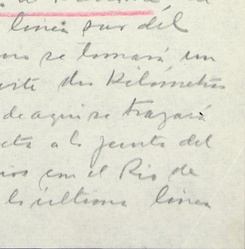 linea sur del
no se tomará un
dos Kilómetros
de aqui se trazará
cta a la junta del
ios con el Rio de
la última linea